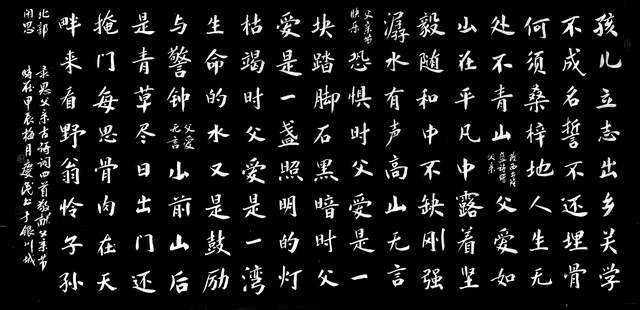 孩儿立志出乡关学
不成名誓不还埋骨
何须桑梓地人生无
处不青山
父亲
父爱如
山在平凡中露着坚
毅随和中不缺刚强
潺水有声高山无言
父亲节
快乐
恐惧时父爱是一
块踏脚石黑暗时父
爱是一盏照明的灯
枯竭时父爱是一湾
生命的水又是鼓励
与警钟
父爱
无言
山前山后
是青草尽日出门还
掩门每思骨肉在天
畔来看野翁怜子孙
北郭
闲思
录思父亲古诗词四首敬献父亲节
时在甲辰梅月庆茂书于银川城